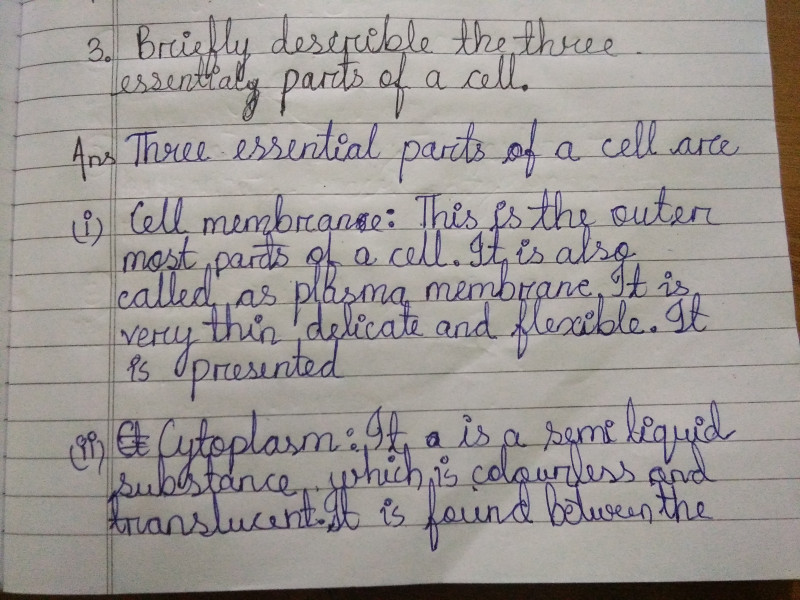 3. Briefly describle the three.
essentialy parts of a cell.
Ans Three essential parts of a cell are
(i) Cell membrane: This is the outer
most parts of a cell. It is also
called as plasma membrane. It is
very thin delicate and flexible. It
is presented
(ii) Cytoplasm: It is a semi liquid
substance which is colourless and
translucent. It is found between the